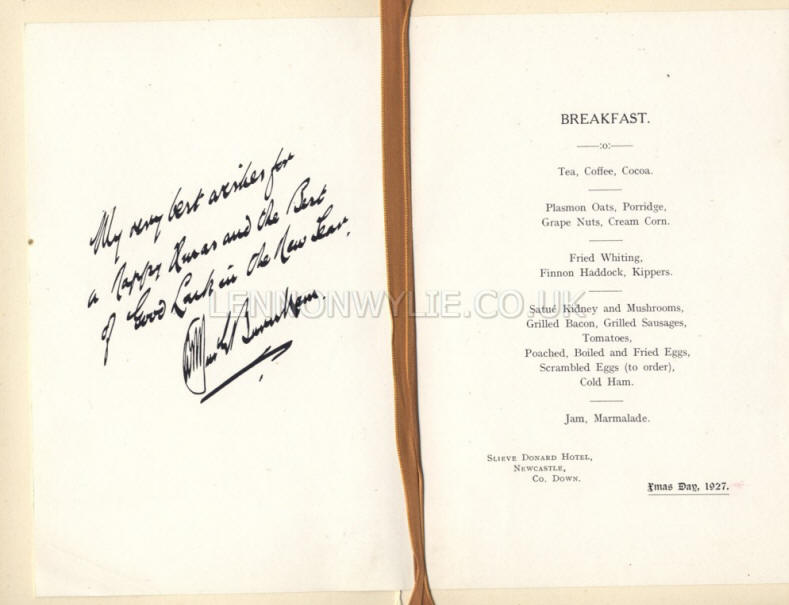 My very best wishes for
a Happy Xmas and the Best
of Good Luck in the New Year.
LENNONWYLIE.CO.UK
BREAKFAST.
—:o:—
Tea, Coffee, Cocoa.
Plasmon Oats, Porridge,
Grape Nuts, Cream Corn.
Fried Whiting,
Finnon Haddock, Kippers.
Satué Kidney and Mushrooms,
Grilled Bacon, Grilled Sausages,
Tomatoes,
Poached, Boiled and Fried Eggs,
Scrambled Eggs (to order),
Cold Ham.
Jam, Marmalade.
Slieve Donard Hotel,
Newcastle,
Co. Down.
Xmas Day, 1927.
LENNONWYLIE.CO.UK